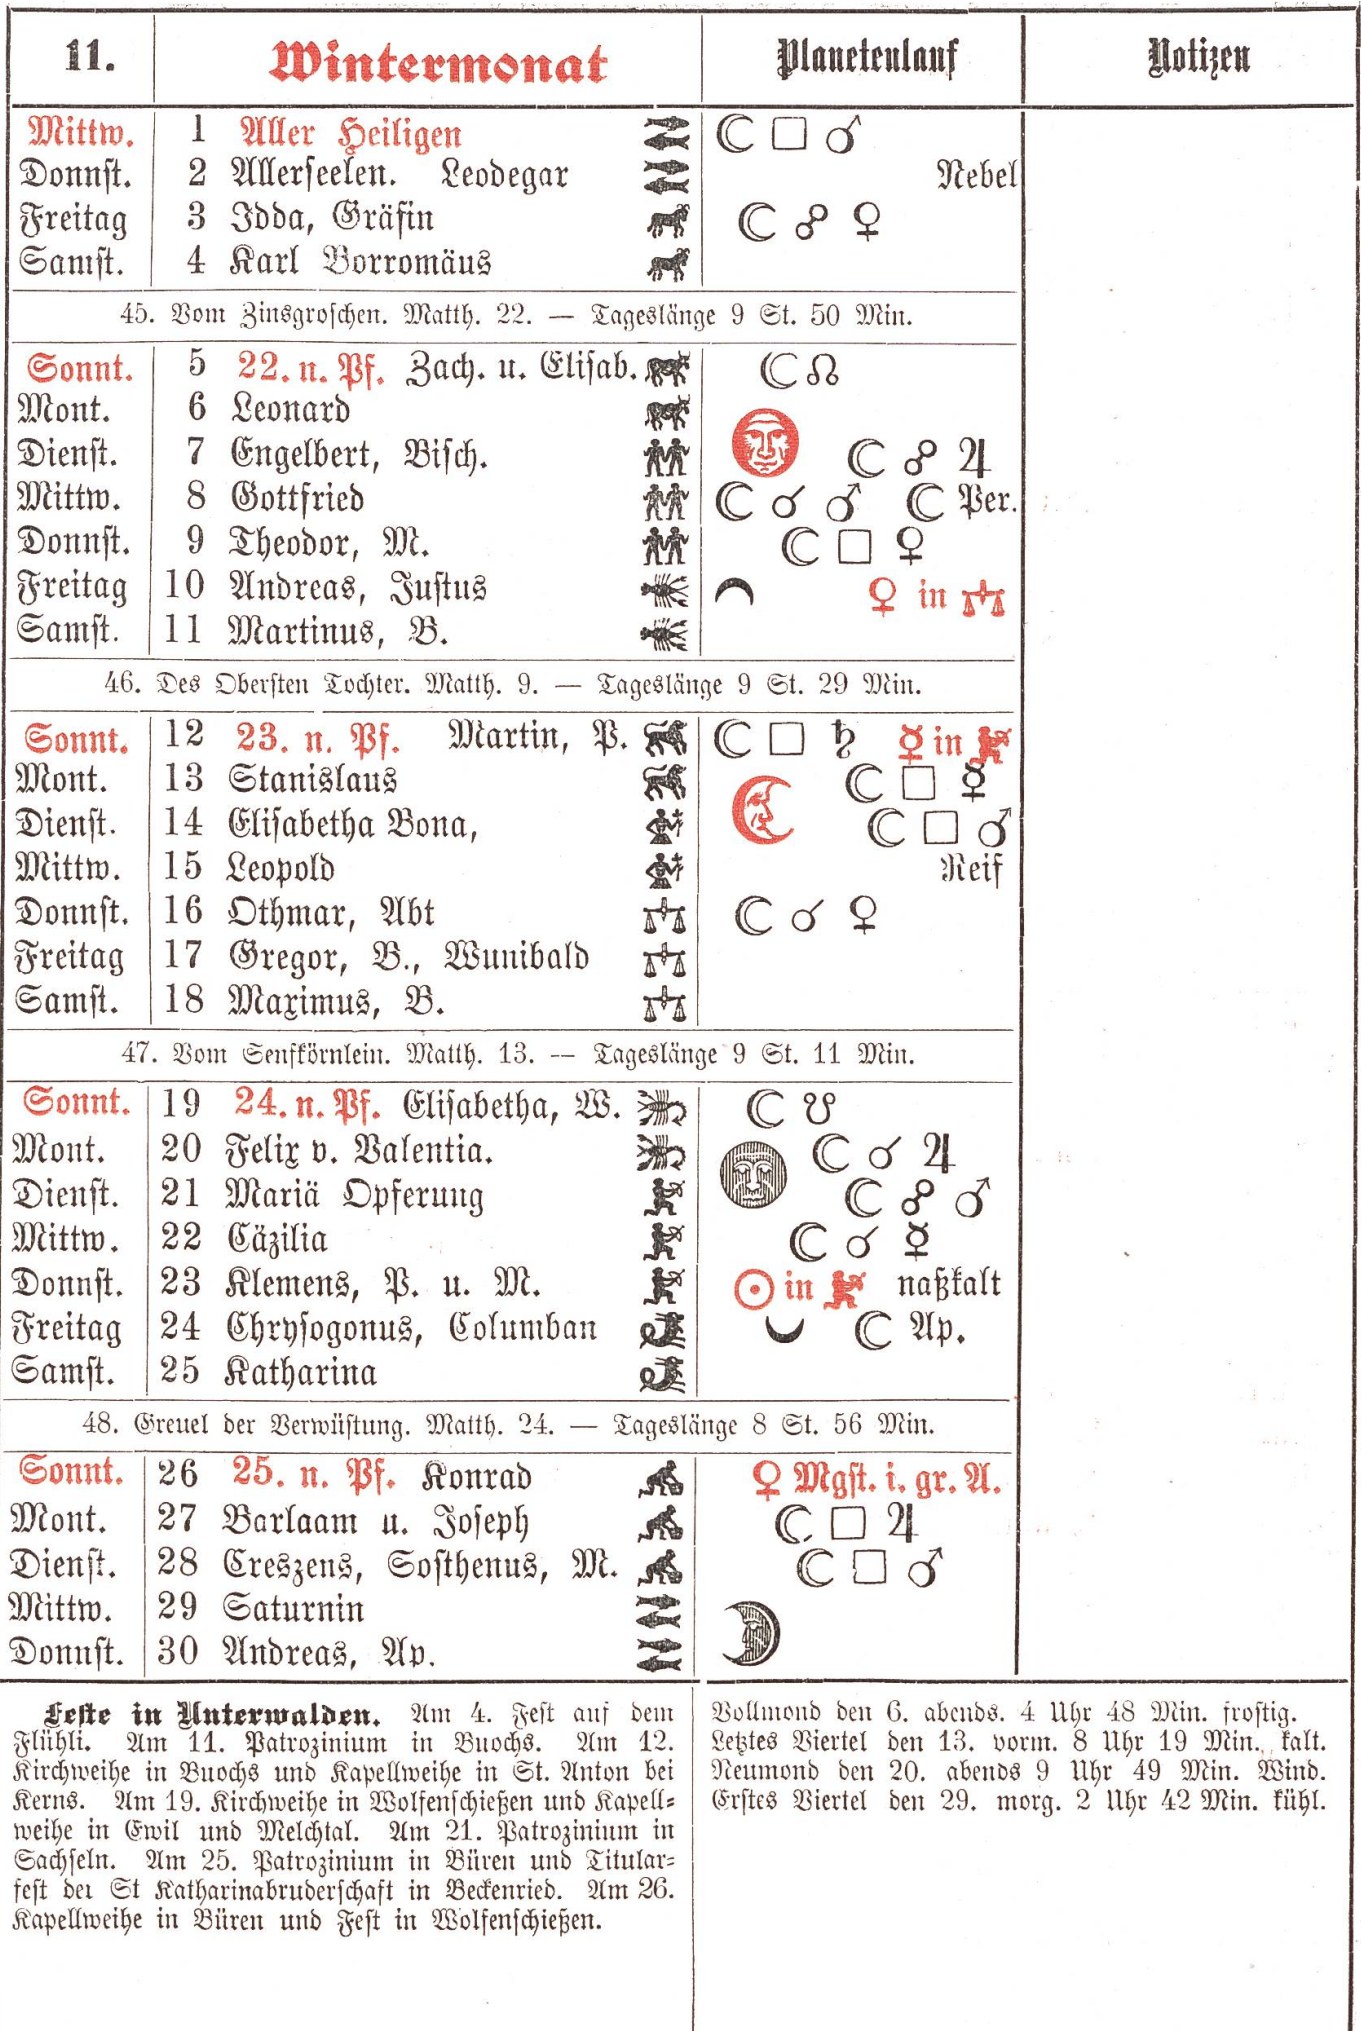 11. Wintermonat Planetenlauf Notizen
Mittw. 1 Aller Heiligen ☾ □ ♂
Donnst. 2 Allerseelen. Leodegar Nebel
Freitag 3 Idda, Gräfin ☾ ☍ ♀
Samst. 4 Karl Borromäus
45. Vom Zinsgroschen. Matth. 22. — Tageslänge 9 St. 50 Min.
Sonnt. 5 22. n. Pf. Zach. u. Elisab. ☾ ☊
Mont. 6 Leonard
Dienst. 7 Engelbert, Bisch. ☾ ☍ ♃
Mittw. 8 Gottfried ☾ ☌ ♂ ☾ Per.
Donnst. 9 Theodor, M. ☾ □ ♀
Freitag 10 Andreas, Justus ♀ in ♎
Samst. 11 Martinus, B.
46. Des Obersten Tochter. Matth. 9. — Tageslänge 9 St. 29 Min.
Sonnt. 12 23. n. Pf. Martin, P. ☾ □ ♄ ☿ in ♐
Mont. 13 Stanislaus ☾ □ ☿
Dienst. 14 Elisabetha Bona, ☾ □ ♂
Mittw. 15 Leopold Reif
Donnst. 16 Othmar, Abt ☾ ☌ ♀
Freitag 17 Gregor, B., Wunibald
Samst. 18 Maximus, B.
47. Vom Senfkörnlein. Matth. 13. — Tageslänge 9 St. 11 Min.
Sonnt. 19 24. n. Pf. Elisabetha, W. ☾ ☋
Mont. 20 Felix v. Valentia. ☾ ☌ ♃
Dienst. 21 Mariä Opferung ☾ ☍ ♂
Mittw. 22 Cäzilia ☾ ☌ ☿
Donnst. 23 Klemens, P. u. M. ☉ in ♐ naßkalt
Freitag 24 Chrysogonus, Columban ☾ Ap.
Samst. 25 Katharina
48. Greuel der Verwüstung. Matth. 24. — Tageslänge 8 St. 56 Min.
Sonnt. 26 25. n. Pf. Konrad ♀ Mgst. i. gr. A.
Mont. 27 Barlaam u. Joseph ☾ □ ♃
Dienst. 28 Creszens, Sosthenus, M. ☾ □ ♂
Mittw. 29 Saturnin
Donnst. 30 Andreas, Ap.
Feste in Unterwalden. Am 4. Fest auf dem
Flühli. Am 11. Patrozinium in Buochs. Am 12.
Kirchweihe in Buochs und Kapellweihe in St. Anton bei
Kerns. Am 19. Kirchweihe in Wolfenschießen und Kapell-
weihe in Ewil und Melchtal. Am 21. Patrozinium in
Sachseln. Am 25. Patrozinium in Büren und Titular-
fest der St Katharinabruderschaft in Beckenried. Am 26.
Kapellweihe in Büren und Fest in Wolfenschießen.
Vollmond den 6. abends. 4 Uhr 48 Min. frostig.
Letztes Viertel den 13. vorm. 8 Uhr 19 Min. kalt.
Neumond den 20. abends 9 Uhr 49 Min. Wind.
Erstes Viertel den 29. morg. 2 Uhr 42 Min. kühl.